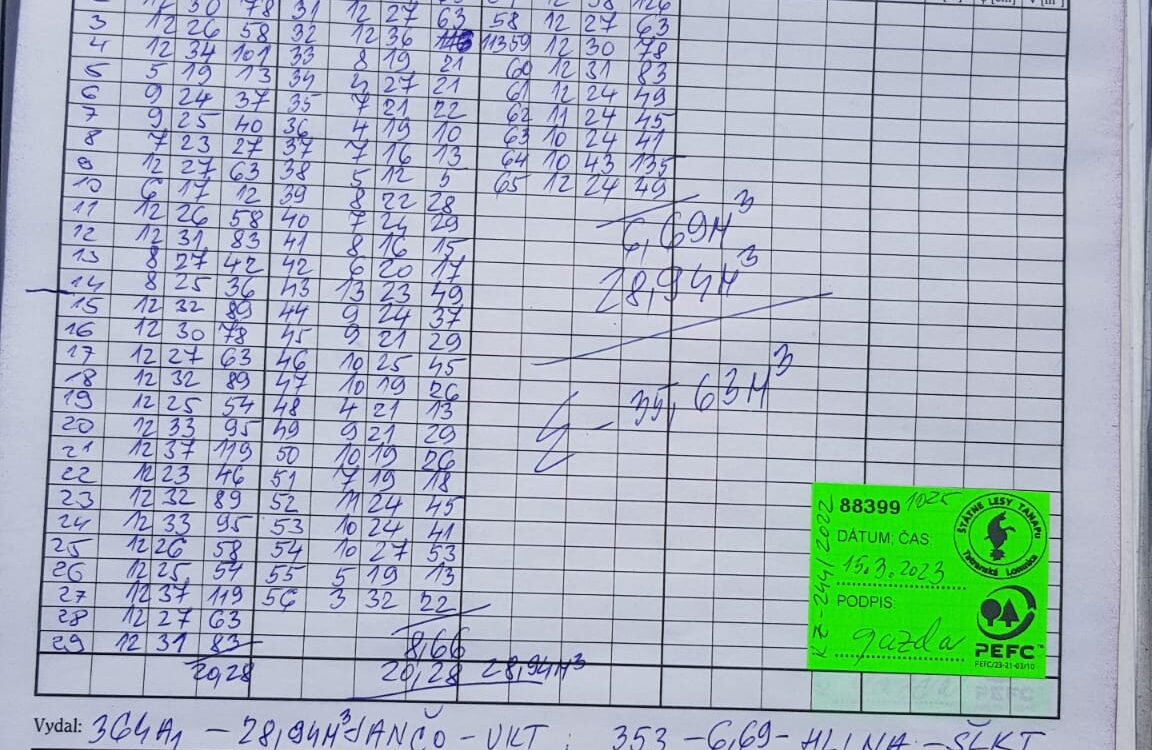 2 12 30 78 31 12 27 63 58 12 27 63
3 12 26 58 32 12 36 113 59 12 30 78
4 12 34 101 33 8 19 21 60 12 31 83
5 5 19 13 34 4 27 21 61 12 24 49
6 9 24 37 35 7 21 22 62 11 24 45
7 9 25 40 36 4 19 10 63 10 24 41
8 7 23 27 37 7 16 13 64 10 43 135
9 12 27 63 38 5 12 5 65 12 24 49
10 6 17 12 39 8 22 28
11 12 26 58 40 7 24 29
6,69M³
12 12 31 83 41 8 16 15
13 8 27 42 42 6 20 17
28,94M³
14 8 25 36 43 13 23 49
15 12 32 89 44 9 24 37
16 12 30 78 45 9 21 29
17 12 27 63 46 10 25 45
18 12 32 89 47 10 19 26
35,63M³
19 12 25 54 48 4 21 13
20 12 33 95 49 9 21 29
21 12 37 119 50 10 19 26
22 12 23 46 51 7 19 18
23 12 32 89 52 11 24 45
24 12 33 95 53 10 24 41
25 12 26 58 54 10 27 53
26 12 25 54 55 5 19 13
27 12 37 119 56 3 32 22
28 12 27 63
29 12 31 83 8,66
20,28 20,28 28,94M³
88399 1025
ŠTÁTNE LESY TANAPU
Tatranská Lomnica
DÁTUM; ČAS:
15.3.2023
PODPIS:
gazda
KZ-244/2022
PEFC™
PEFC/23-21-03/10
Vydal: 364A1 – 28,94M³ JANČO – VKT; 353 – 6,69 – HLINA – ŠLKT